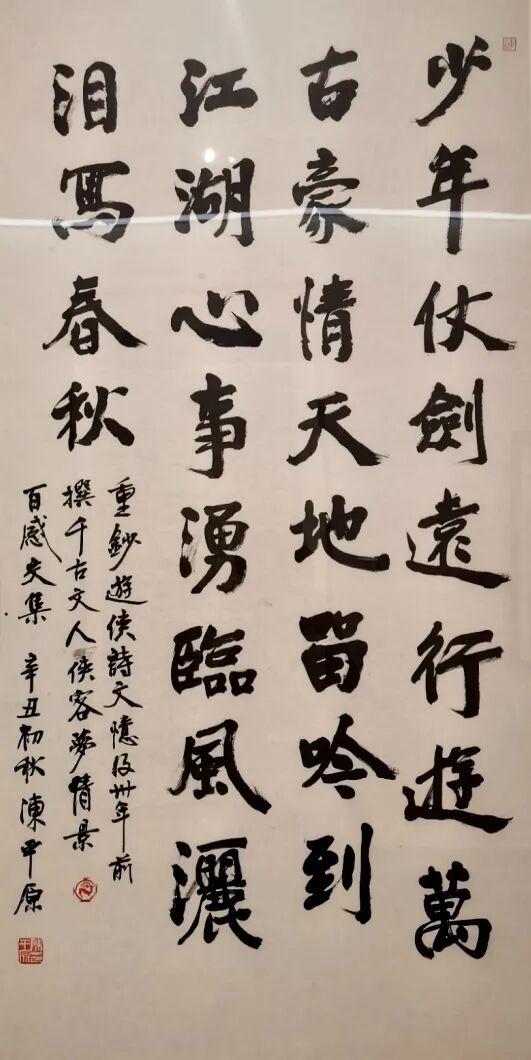 少年仗劍遠行遊萬
古豪情天地留吟到
江湖心事湧臨風灑
泪寫春秋
重鈔遊俠詩文憶及卅年前
撰千古文人俠客夢情景
百感交集 辛丑初秋 陳平原